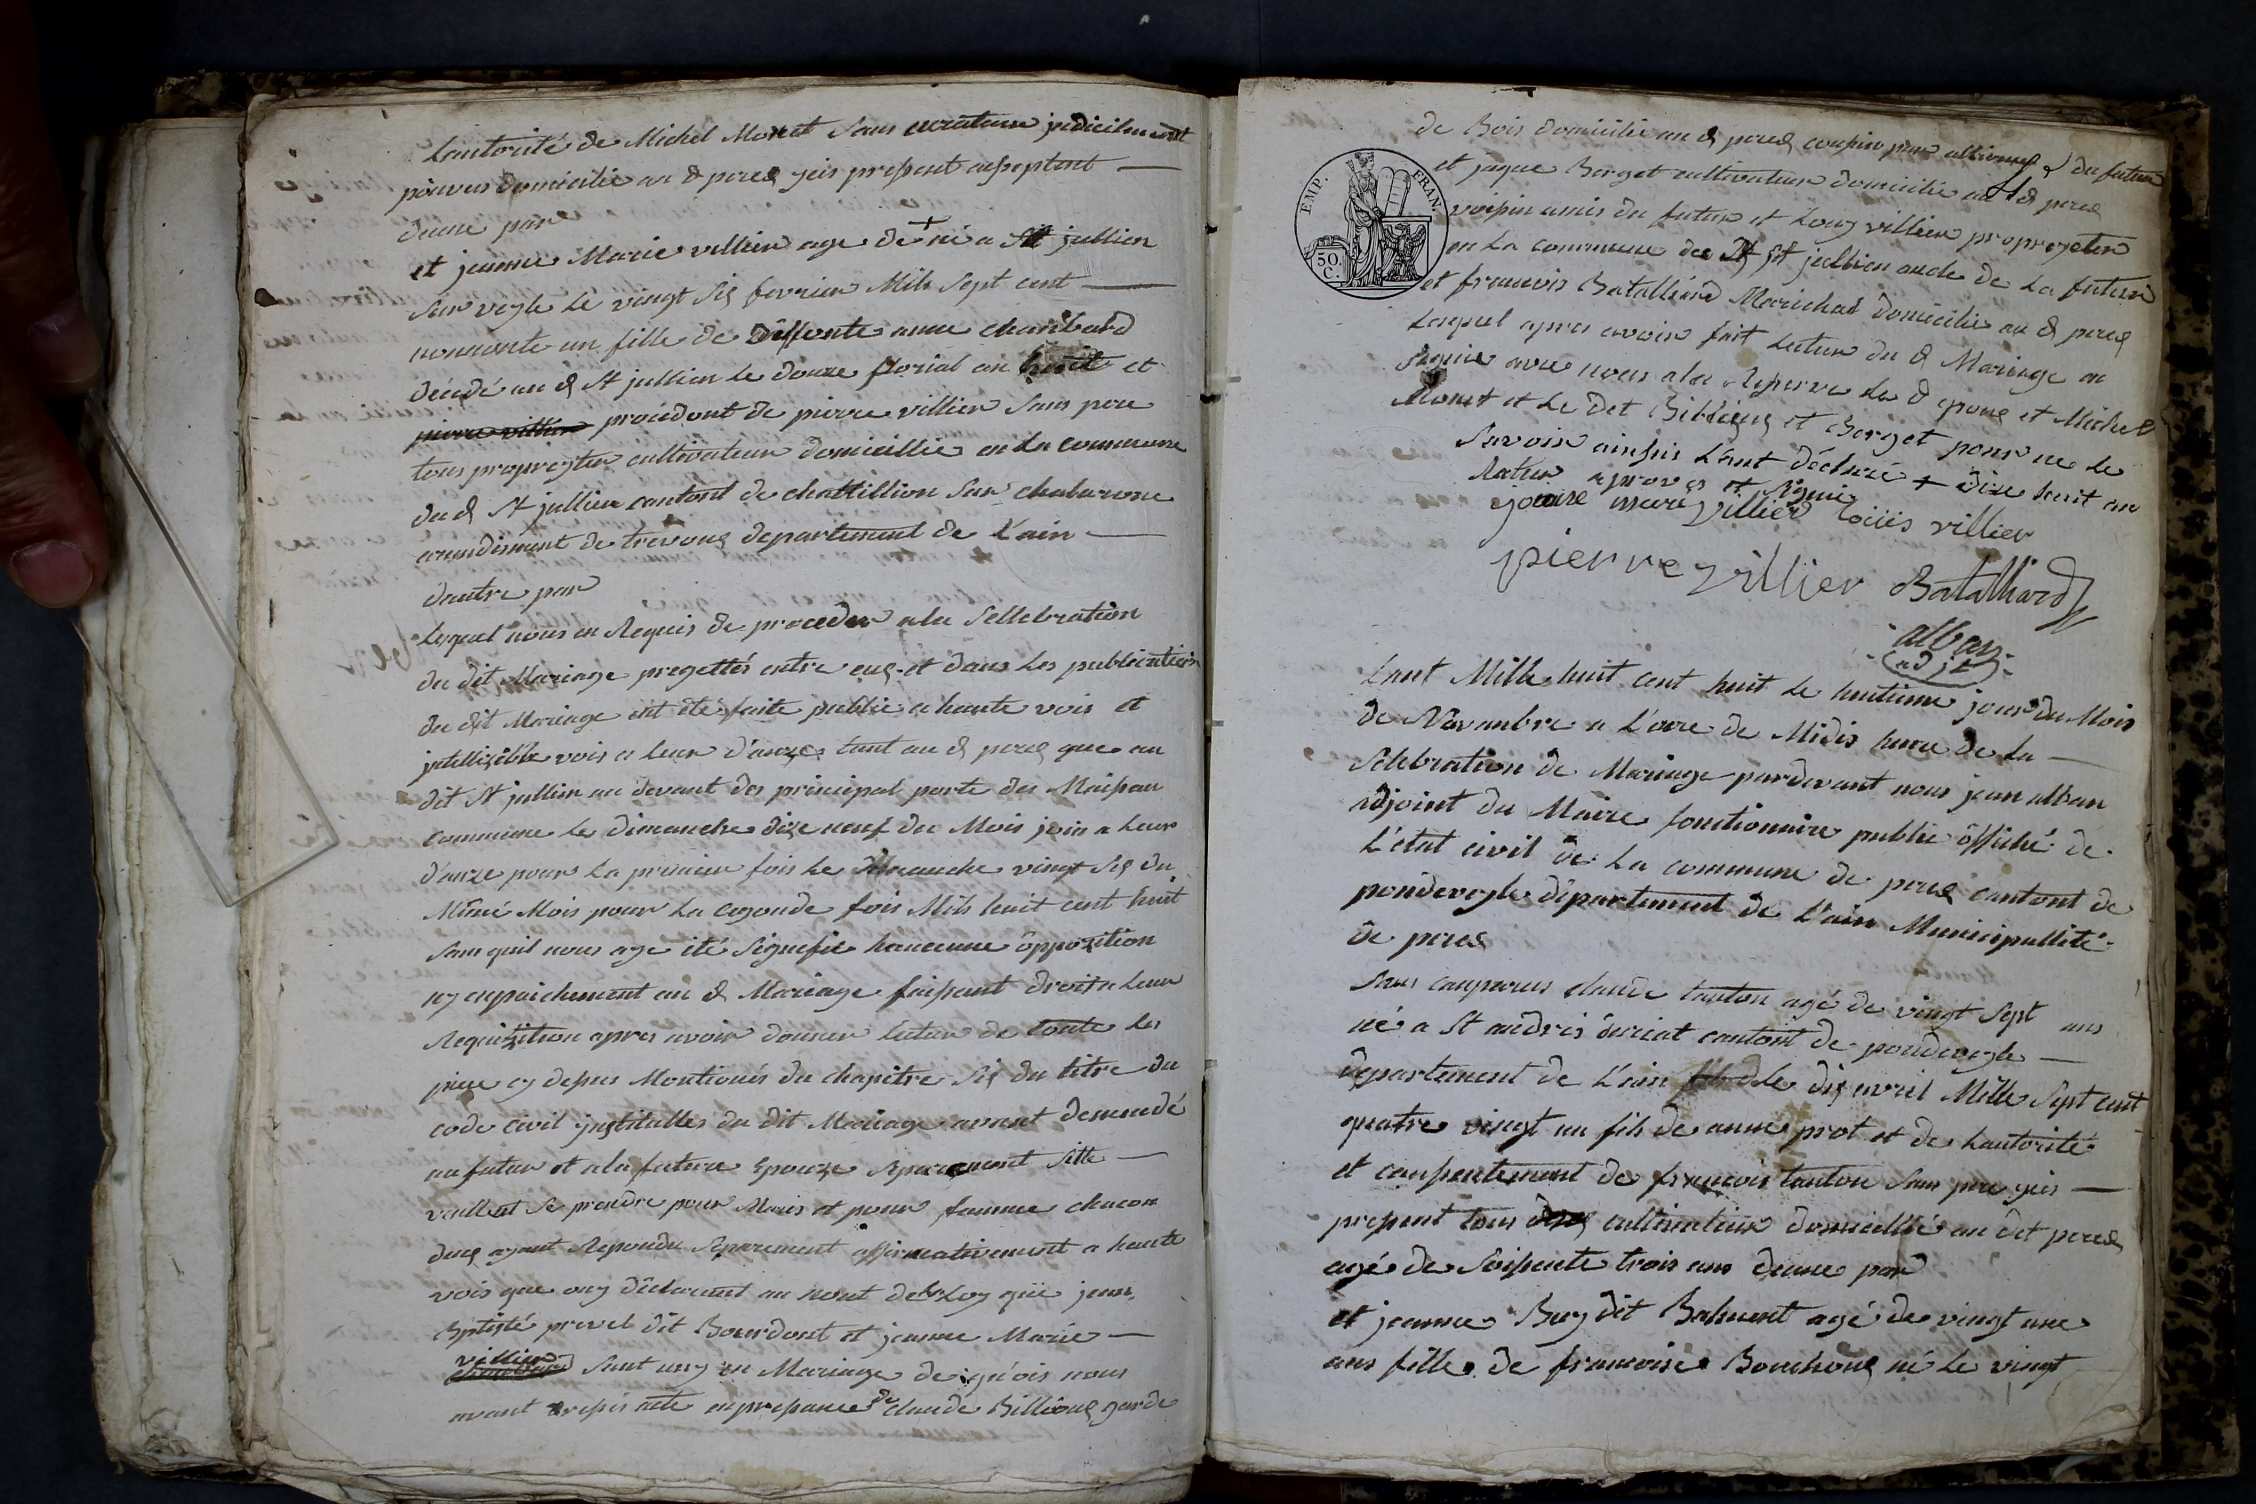 Lautorité de Michel Monet Sans curateur judicilmentt
pourvus domicilie au d perex yci pressent asseptent
dune par
et jeanne Marie villier age de + né a St jullien
Sur vegle le vingt Six fevrier Mils Sept cent
nonnonte un fille de deffonte anne chanbard
décédé au d St jullien le douze florial an huit et
pierre villier procédont de pierre villier Sans pere
tous propreyter cultivateur domicillié en la commune
du d St jullien cantont de chattillion Sur chalarone
arondisment de trevoux departement de L'ain
dautre par
Lequel nous en Requis de proceder a la Sellebration
du dit Mariage progettés entre eux et dans les publication
du dit Mariage ont été faite public a haute vois et
jntelligible vois a leur d'onzes tant au d perex que au
dit St jullien au devant des principal porte des Maison
commune le dimanche dixe neuf du Mois juin a leur
d'onze pour la premier fois le dimanche vingt Six du
Mêmé Mois pour la cegonde fois Mils huit cent huit
Sans quil nous aye été Signefié haucune ôppozition
ny enpaichement au d Mariage faissant droit a leur
Requizition apres avoir donner lectur de toute les
piece cy desus Montionés du chapitre Six du titre du
code civil jnstitulles du dit Mariage avont demendé
au futur et a la future Epouze Separement Sille
veullent Se prendre pour Maris et pour famme chacon
deux ayant Repondu Separement affirmativement a haute
vois que ouy déclarent au nont de la Loy qüe jean
Bptisté prevel dit Bourdont et jeanne Marie
villier
chanbard Sont uny en Mariage de qu'ois nous
avont dressés acte enpresance de claude Billioux garde
de Bois domicilie au d perex coussin par alliance du futur
et jaque Berget cultivateur domicilie au d perex
voissin amis du futur et Louy villier propreyeter
en La commune de St jullien oncle de la future
et francois Batalliard Marichal domicilie au d perex
Lesquel apres avoir fait lectur du d Mariage on
Signie avec nous a la Reserve les d epoux et Michel
Monet et le det Billioux et Berget pour ne le
Savoir ainssis L'ont déclaré + dixe huit an
Ratur aprovés et Signié
jeane marie villier loiiis villier
pierre villier Batalliard
alban
adjt
EMP. FRAN.
50.
C.
Lant Mille huit cent huit le huitieme jour du Mois
de Novambre a L'oure de Midis heure de la
Selebration de Mariage pardevant nous jean alban
adjoint du Maire fonctionnire public ôffiché de
L'état civil de La commune de perex cantont de
pondevegle département de L'ain Municipallité
de perex
Sons conparus claude tanton agé de vingt Sept ans
né a St andris deriat cantont de pondevegle
departement de L'ain le dix avril Mille Sept cent
quatre vingt un fils de anne prot et de hautorité
et conssentement de francois tanton Sons pere yci
pressent tous cultivateur domicillié au dit perex
agé de Soissente trois ans dune par
et jeanne Buy dit Bahuent agé de vingt une
ans fille de francoise Bouchoux né le vingt